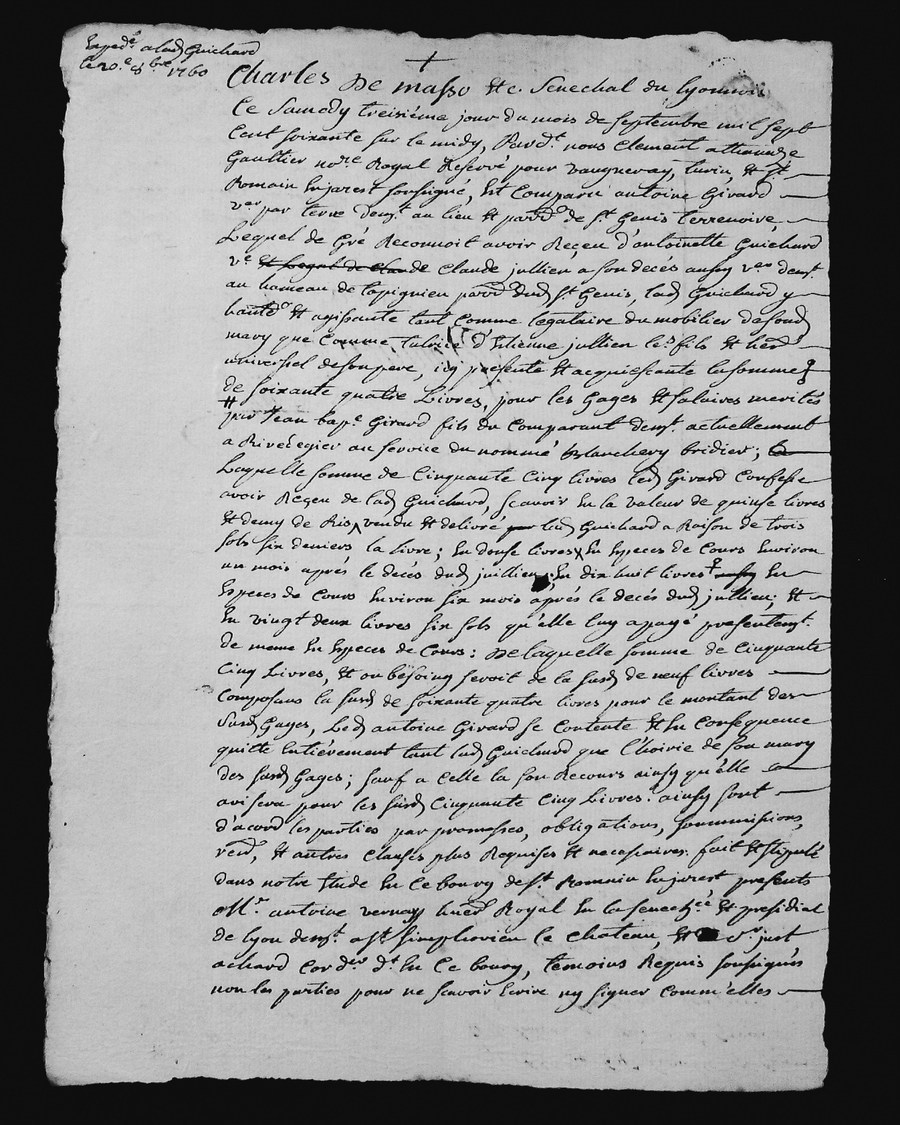 Exped.e a lad Guichard
le 20.e 8.bre 1760
+
Charles De masso &c. Senechal du lyonnois
Ce Samedy treisiéme jour du mois de septembre mil sept
Cent soixante sur le midy, Pard.t nous Clement
Gaultier no.re Royal Reservé pour vaugneray, turin, & S.t
Romain En jarest soussigné, Est Comparu antoine Girard
v.on par terre dem.t au lieu & parr.e de S.t Genis terrenoire,
Lequel de Gré Reconnoit avoir Reçeu d'antoinette Guichard
v.e de Claude jullien a son decés aussy v.on dem.t
au hameau de parr.e dud S.t Genis, lad Guichard y
habit.e & agissante tant Comme legataire du mobilier de sond
mary que Comme tutrice d'Etienne jullien le.d fils & herd
universel de son pere, icy presente & acquiessante la somme
de soixante quatre Livres, pour les Gages & salaires merités
par Jean bap.te Girard fils du Comparant dem.t actuellement
a Rivedegier au service du nommé bridier;
Laquelle somme de Cinquante Cinq livres led Girard Confesse
avoir Reçeu de lad Guichard, scavoir En la valeur de quinse livres
& demy de Ris vendu & delivré par lad Guichard a Raison de trois
sols six deniers la livre; En douse livres En Especes de Cours Environ
un mois aprés le decés dud jullien; En dix huit livres En
Especes de Cours Environ six mois aprés le decés dud jullien; &
En vingt deux livres six sols qu'elle luy a payé presentem.t
de meme En Especes de Cours: De laquelle somme de Cinquante
Cinq Livres, & au besoing seroit de la susd de neuf livres
Composans la susd de soixante quatre livres pour le montant des
susd Gages, Led antoine Girard se Contente & En Consequence
quitte Entiérement tant lad Guichard que l'hoirie de son mary
des susd Gages; sauf a Celle la son Recours ainsy qu'elle
avisera pour les susd Cinquante Cinq Livres. ainsy sont
d'acord les parties par promesses, obligations, soummissions,
ren.d, & autres Clauses plus Requises & necessaires. fait & stipulé
dans notre Etude En Ce bourg de S.t Romain En jarest presents
M.r antoine vernay Royal En la senech.ée & presidial
de Lyon dem.t a S.t simphorien le Chateau, & s.r just
achard Cord.er d.t En Ce bourg, temoins Requis soussignés
non les parties pour ne scavoir Ecrire ny signer Comm'elles